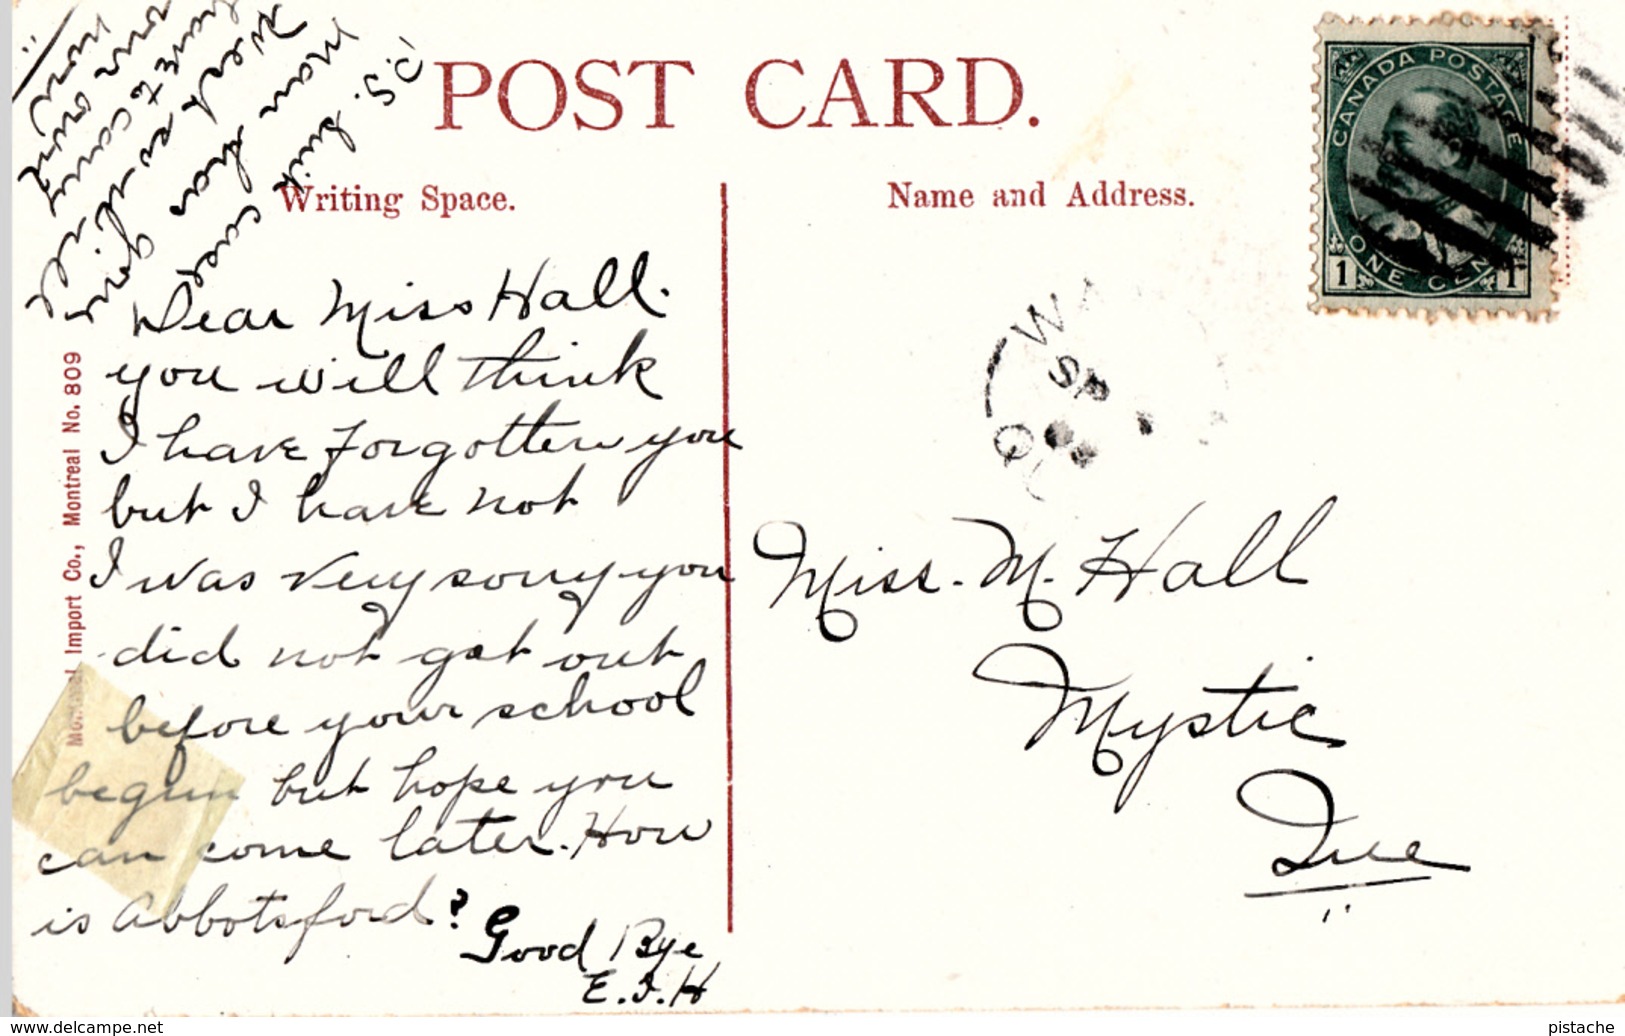 POST CARD.
Writing Space.
Name and Address.
CANADA POSTAGE
ONE CENT
1 1
Dear Miss Hall.
you will think
I have forgotten you
but I have not
I was very sorry you
did not get out
before your school
begun but hope you
can come later. How
is Abbotsford?
Good Bye
E.J.H
P.S.
man has
have to carry
our own
now
Miss. M. Hall
Mystic
Que
Montreal Import Co., Montreal No. 809
www.delcampe.net
pistache